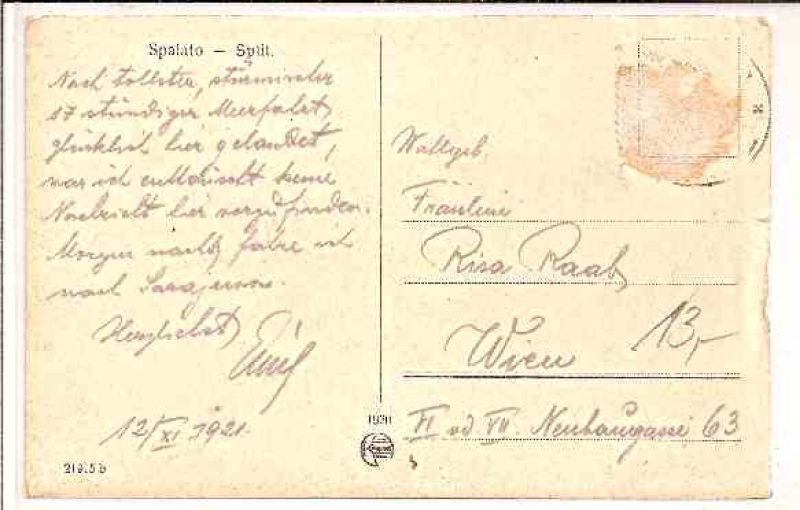 Spalato — Split.
Nach tollster, stürmischer
17 stündiger Meerfahrt,
glücklich hier gelandet,
war ich enttäuscht keine
Nachricht hier vorzufinden.
Morgen nachts fahre ich
nach Sarajewo.
Herzlichst,
Emil
12/XI 1921.
219.5 b
Wohlgeb.
Fräulein
Risa Raab,
Wien
13,-
VI od VII. Neubaugasse 63